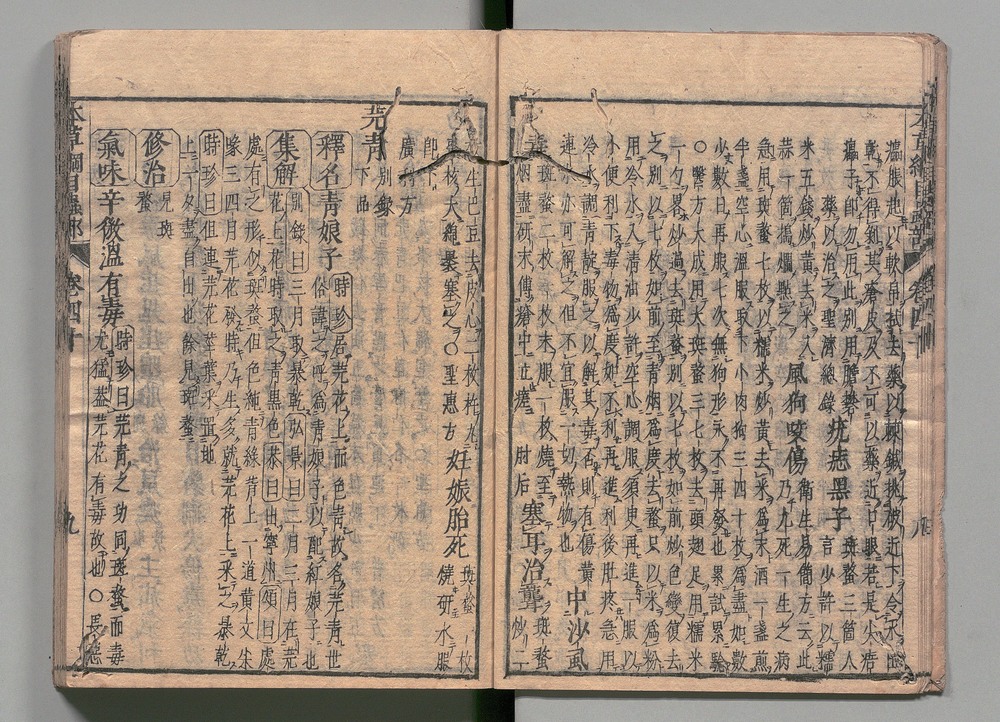 瘟脹起以軟帛拭去藥以棘鍼挑破近下令水出
乾不得剝其瘡皮及不可以藥近口眼若是尖瘩
瘟子即勿用此別用膽礬 疣痣黑子 斑蝥三箇人
藥以治之聖濟總錄 言少許以糯
米五錢炒黃去米入 風狗咬傷 衛生易簡方云此
蒜一箇搗爛點之 乃九死一生之病
急用斑蝥七枚以糯米炒黃去米爲末酒一盞煎
半盞空心溫服取下小肉狗三四十枚爲盡如數
少數日再服七次無狗形永不再發也累試累驗
○醫方大成用大斑蝥三七枚去頭翅足用糯米
一勺炒過去斑蝥別以七枚如前炒色變復去
之別以七枚如前至青烟爲度去蝥只以米爲粉
用冷水入清油少許空心調服須臾再進一服以
小便利下毒物爲度如不利再進利後肚疼急用
冷水調青靛服之以解其毒否則有傷黃 中沙蝨
連水亦可解之但不宜服一切熱物也
毒斑蝥二枚一枚末服一枚燒至 塞耳治聾 斑蝥
烟盡研末傅瘡中立瘥 肘后 炒二
生巴豆去皮心二枚杵丸 斑蝥一枚
核大綿裹塞之○聖惠方 妊娠胎死 燒研水服
即下
廣利方
芫青 別錄
下品
釋名 青娘子 時珍 居芫花上而色青故名芫青世
俗諱之呼爲青娘子以配紅娘子也
集解 別錄曰三月取暴乾弘景曰二月三月在芫
花上花時取之青黑色恭曰出寧州頌曰處
處有之形似斑蝥但色純青綠背上一道黃文尖
喙三四月芫花發時乃生多就芫花上采之暴乾
時珍曰但連芫花莖葉采置地
上一夕盡自出也餘見斑蝥
修治 見斑
蝥
氣味 辛微溫有毒 時珍曰芫青之功同斑蝥而毒
尤猛蓋芫花有毒故也○長
本草綱目蟲部 卷四十 九